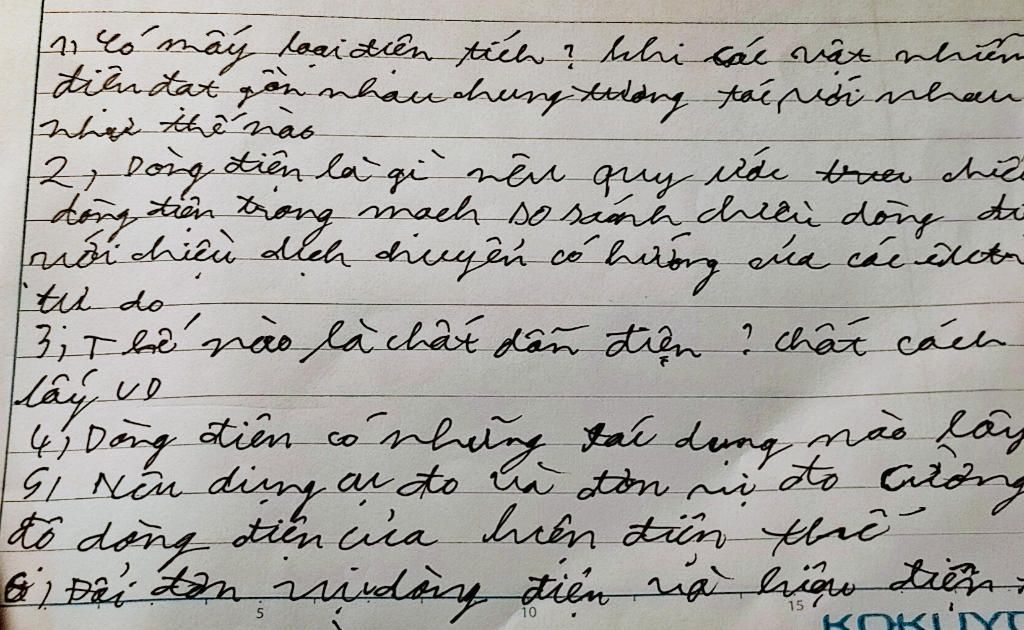 1, Có mấy loại điện tích ? khi các vật nhiễm
điện đạt gần nhau chung tương tác với nhau
như thế nào
2, Dòng điện là gì nêu quy ước chiề
dòng điện trong mach so sánh chiều dòng đi
với chiệu dich chuyển có hướng của các êlctr
tư do
3, Thế nào là chất dẫn điện ? chất cách
lấy VD
4, Dòng điên có những tác dụng nào lây
5, Nêu dụng cụ đo và đơn vị đo Cường
đô dòng điện của hiên điên thế
6, Đổi đơn vị dòng điện và hiệu điện
5 10 15
KOKUYO